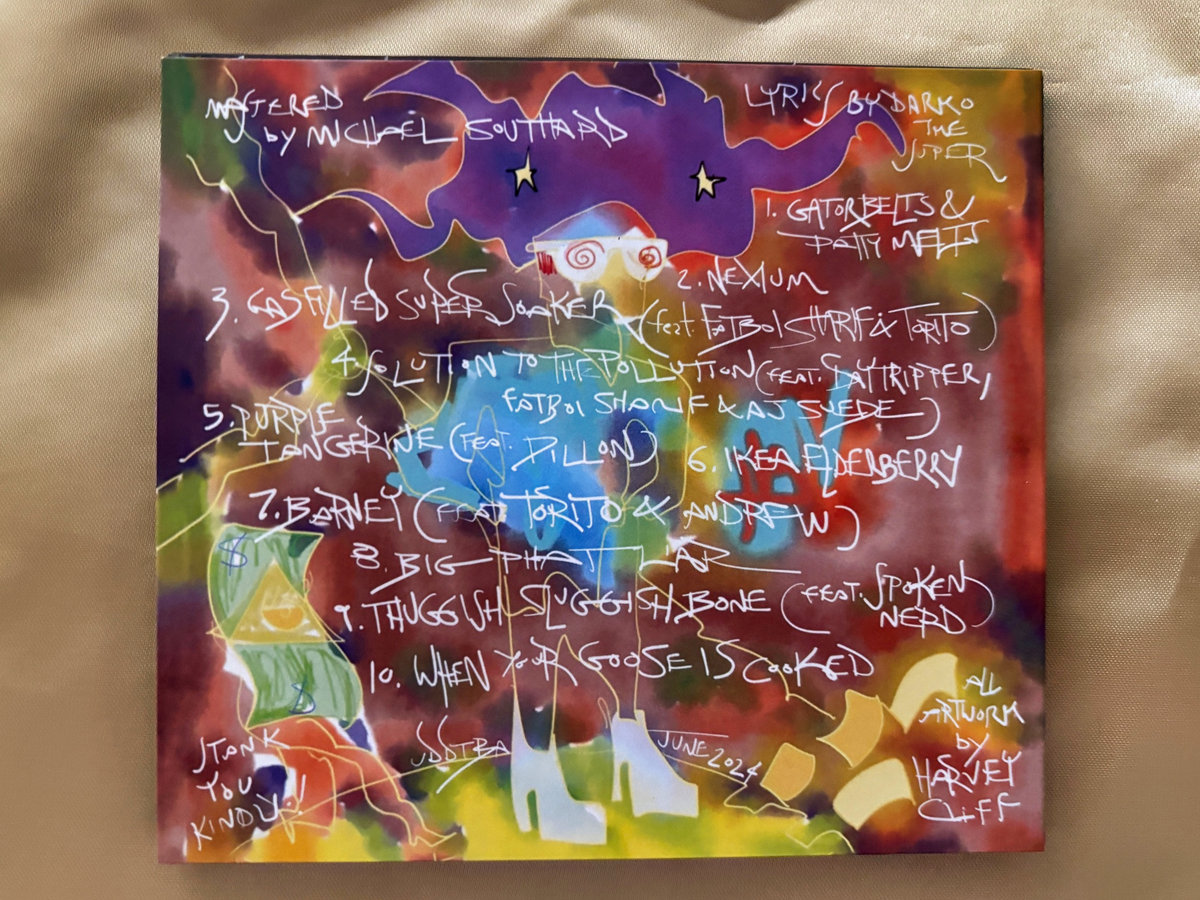 MASTERED
by MICHAEL SOUTHARD
LYRICS BY DARKO
THE
SUPER
1. GATORBELTS &
PATTY MELTS
2. NEXIUM
3. GASFILLED SUPER SOAKER (feat. FATBOI SHARIF & TORITO)
4. SOLUTION TO THE POLLUTION (FEAT. DAYTRIPPER,
FATBOI SHARIF & AJ SUEDE)
5. PURPLE
TANGERINE (FEAT. DILLON)
6. IKEA ELDERBERRY
7. BARNEY (FEAT TORITO & ANDREW)
8. BIG PHAT LIAR
9. THUGGISH SLUGGISH BONE (FEAT. SPOKEN
NERD)
10. WHEN YOUR GOOSE IS COOKED
$
$
STONK
YOU
KINDLY!
JUNE 2024
ALL
ARTWORK
by
HARVEY
CLIFF